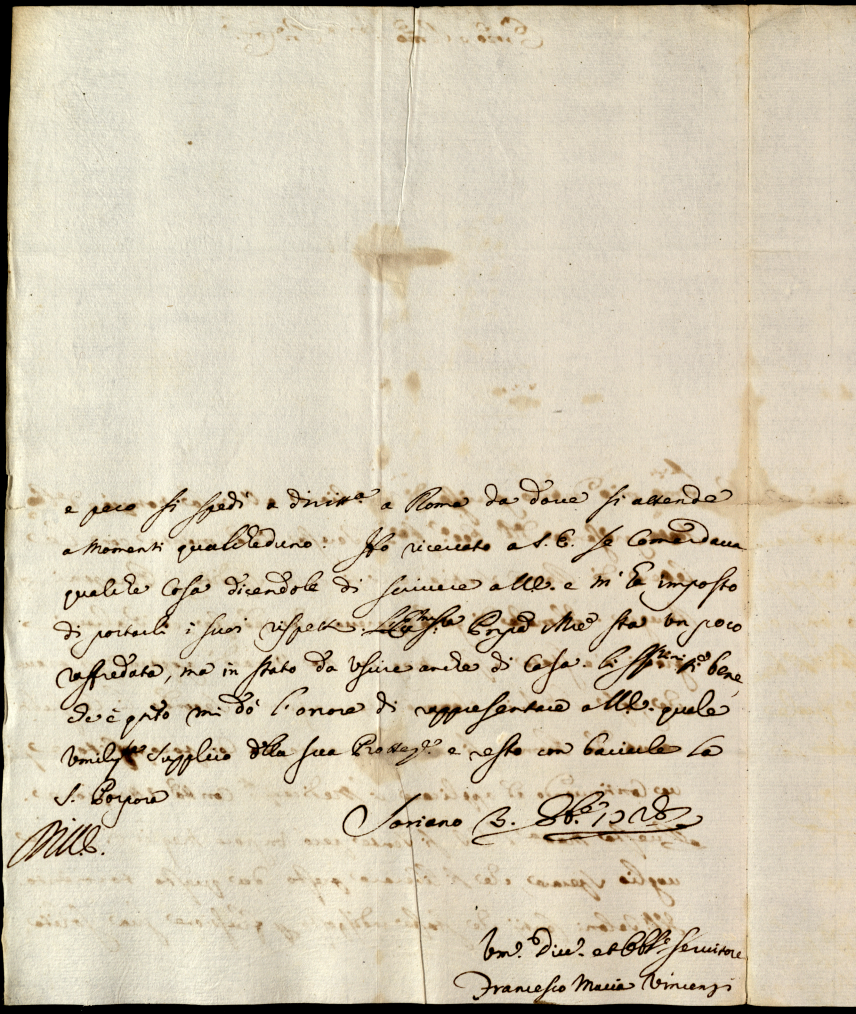 e peró si spedì a diritt.ª a Roma da dove si attende
a momenti qualcheduno. Ho ricercato a S. E. se Comandava
qualche Cosa dicendole di scrivere a V.E. e m' ha imposto
di portarli i suoi rispetti. sta un poco
raffredata, ma in stato da Uscire anche di Casa. bene,
che è q.nto mi dó l'onore di rappresentare a V.E. quale
Umilm.te Supplico della sua Prottez.e e resto con baciarle la
S. Porpora
Soriano 3. 8b.e 1728
Um.o Div.o et Obb.o Servitore
Francesco Maria Vincenzi